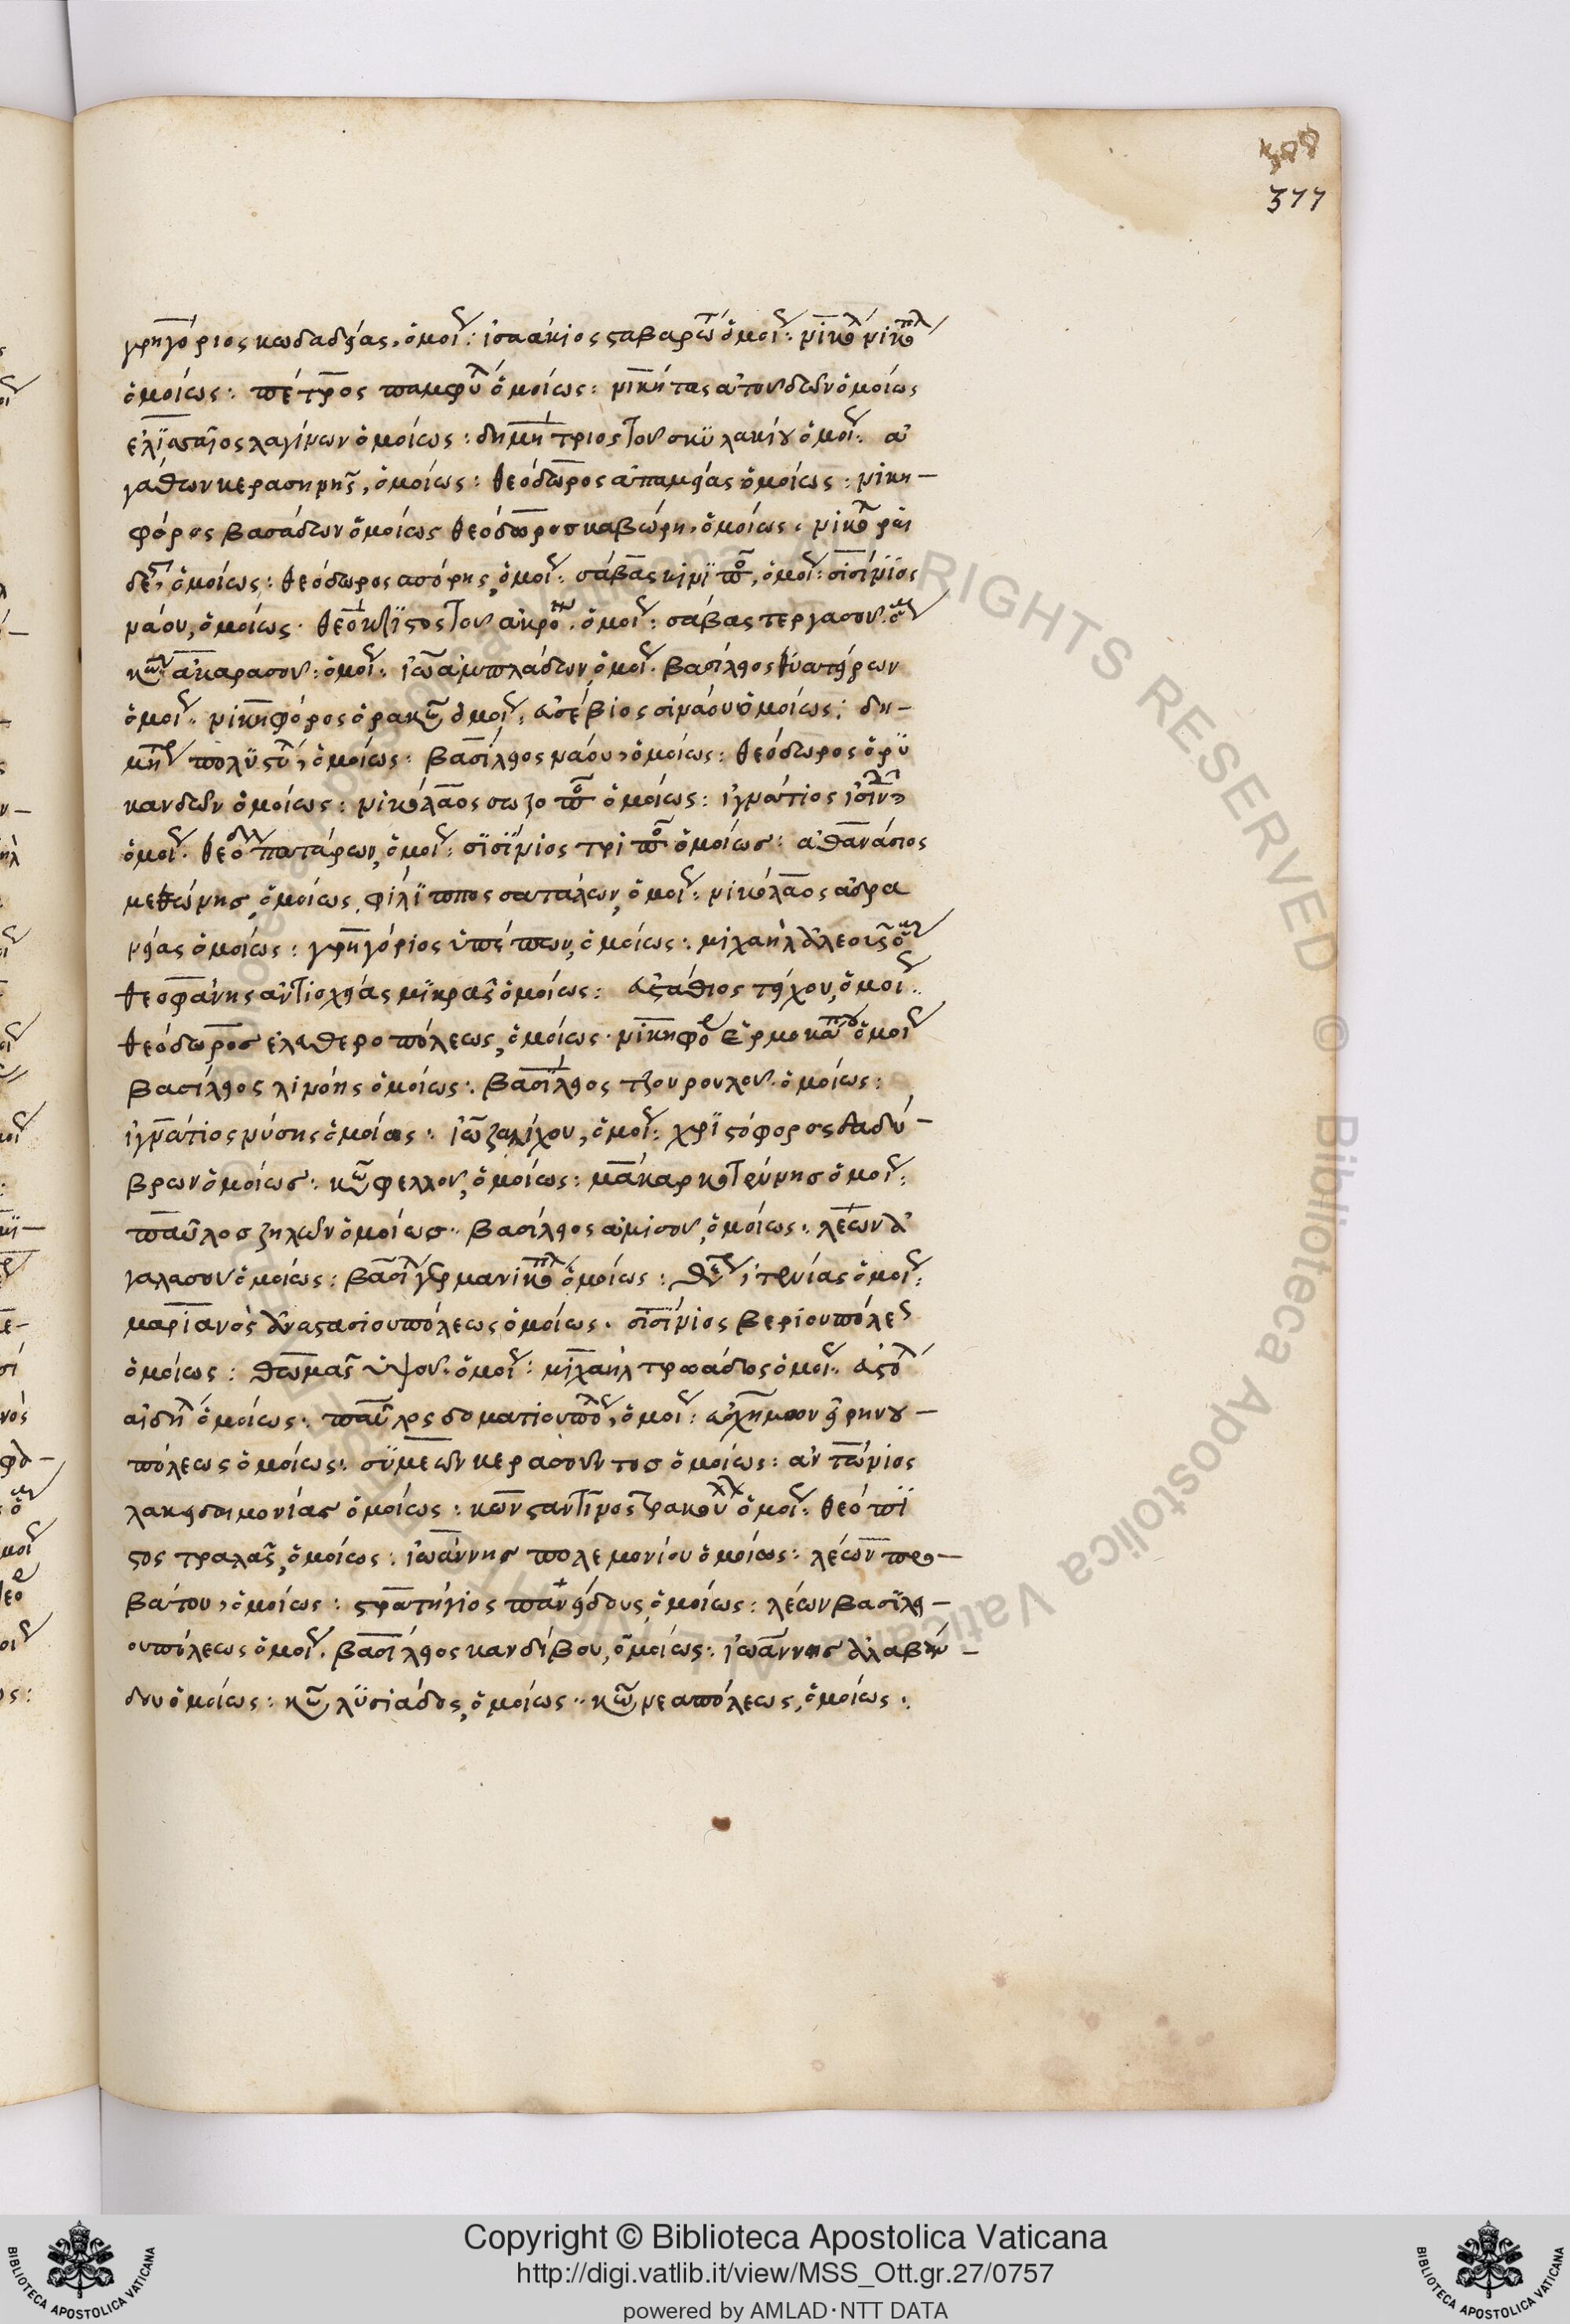 377
γρηγόριος κωδαδείας, ὁμοί: ἰσαάκιος ςαβαρῶ ὁμοί: νικο νικο
ὁμοίως: πέτρος παμφυ ὁμοίως: νικήτας ὁμοίως
ἐλϊσσαῖος λαγίνων ὁμοίως: δημήτριος τοῦ σκϋλακίου ὁμοί: ἀ
γάθων κερασηνῆς, ὁμοίως: θεόδωρος ἀπαμείας ὁμοίως: νικη-
φόρος βασάδων ὁμοίως θεόδωρος καβώρη, ὁμοίως: νικο
δε, ὁμοίως: θεόδωρος ασόρης, ὁμοί: σάβας ὁμοί: σισίνϊος
νάου, ὁμοίως· θεόκλϊςος τοῦ ἀκρο. ὁμοί: σάβας τεργασου. ὁ
κων ἀκαρασου: ὁμοί: ἰω ἀμπλάδων, ὁμοί. βασίλειος θυατείρων
ὁμοί: νικηφόρος ὁρακων ὁμοί: εὐσέβιος σινάου ὁμοίως: δη-
μη πολϋςυ, ὁμοίως: βασίλειος νάου, ὁμοίως: θεόδωρος ὁρϋ
κανδων ὁμοίως: νικόλαος σωζοπο ὁμοίως: ἰγνάτιος
ὁμοί. θεο πατάρων, ὁμοί: σϊσϊνιος τριπο ὁμοίως: ἀθανάσιος
μεθώνης, ὁμοίως. φιλϊππος σατάλων, ὁμοί: νικόλαος ἀσρα
νείας ὁμοίως: γρηγόριος ὑπέπων, ὁμοίως: μιχαὴλ ὁ
θεοφάνης ἀντιοχείας μϊκρᾶς ὁμοίως: εὐςάθιος τείχου, ὁμοι.
θεόδωρος ἐλευθεροπόλεως, ὁμοίως· νικηφο ἑρμοκα ὁμοι
βασίλειος λινόης ὁμοίως: βασϊλειος τζουρουλου ὁμοίως:
ἰγνάτιος νύσης ὁμοίως: ἰω ζαλίχου, ὁμοί: χρϊςόφορος θαδύ-
βρων ὁμοίως: κων φελλου, ὁμοίως: μακαρ κοτρύνης ὁμοί:
παῦλος ζήλων ὁμοίως· βασίλειος ἀμισου, ὁμοίως: λέων ἀ
γαλασου ὁμοίως: βασι γερμανικο ὁμοίως: ὁμοί:
μαριανὸς ἀναςασιουπόλεως ὁμοίως. σισίνιος βεριουπόλε
ὁμοίως: θωμᾶς ὕψου. ὁμοί: μιχαὴλ τρωάδος ὁμοί. εὐςο
αἰδη ὁμοίως· παῦλος δοματιουπο, ὁμοί: εὐσχήμων εἰρηνου-
πόλεως ὁμοίως: σϋμεων κερασοῦντος ὁμοίως: ἀντώνιος
λακεδαιμονίας ὁμοίως: κωνςαντῖνος τρακου ὁμοί. θεόπϊ
ςος τραλας, ὁμοίως: ἰωάννης πολεμονίου ὁμοίως: λέων προ-
βάτου, ὁμοίως: ςρατήγιος πανείδους ὁμοίως: λέων βασϊλει-
ουπόλεως ὁμοί. βασίλειος κανδίβου, ὁμοίως: ἰωάννης ἀλαβαν-
δου ὁμοίως: κων λϋσιάδος, ὁμοίως· κων νεαπόλεως, ὁμοίως:
Copyright © Biblioteca Apostolica Vaticana
http://digi.vatlib.it/view/MSS_Ott.gr.27/0757
powered by AMLAD·NTT DATA